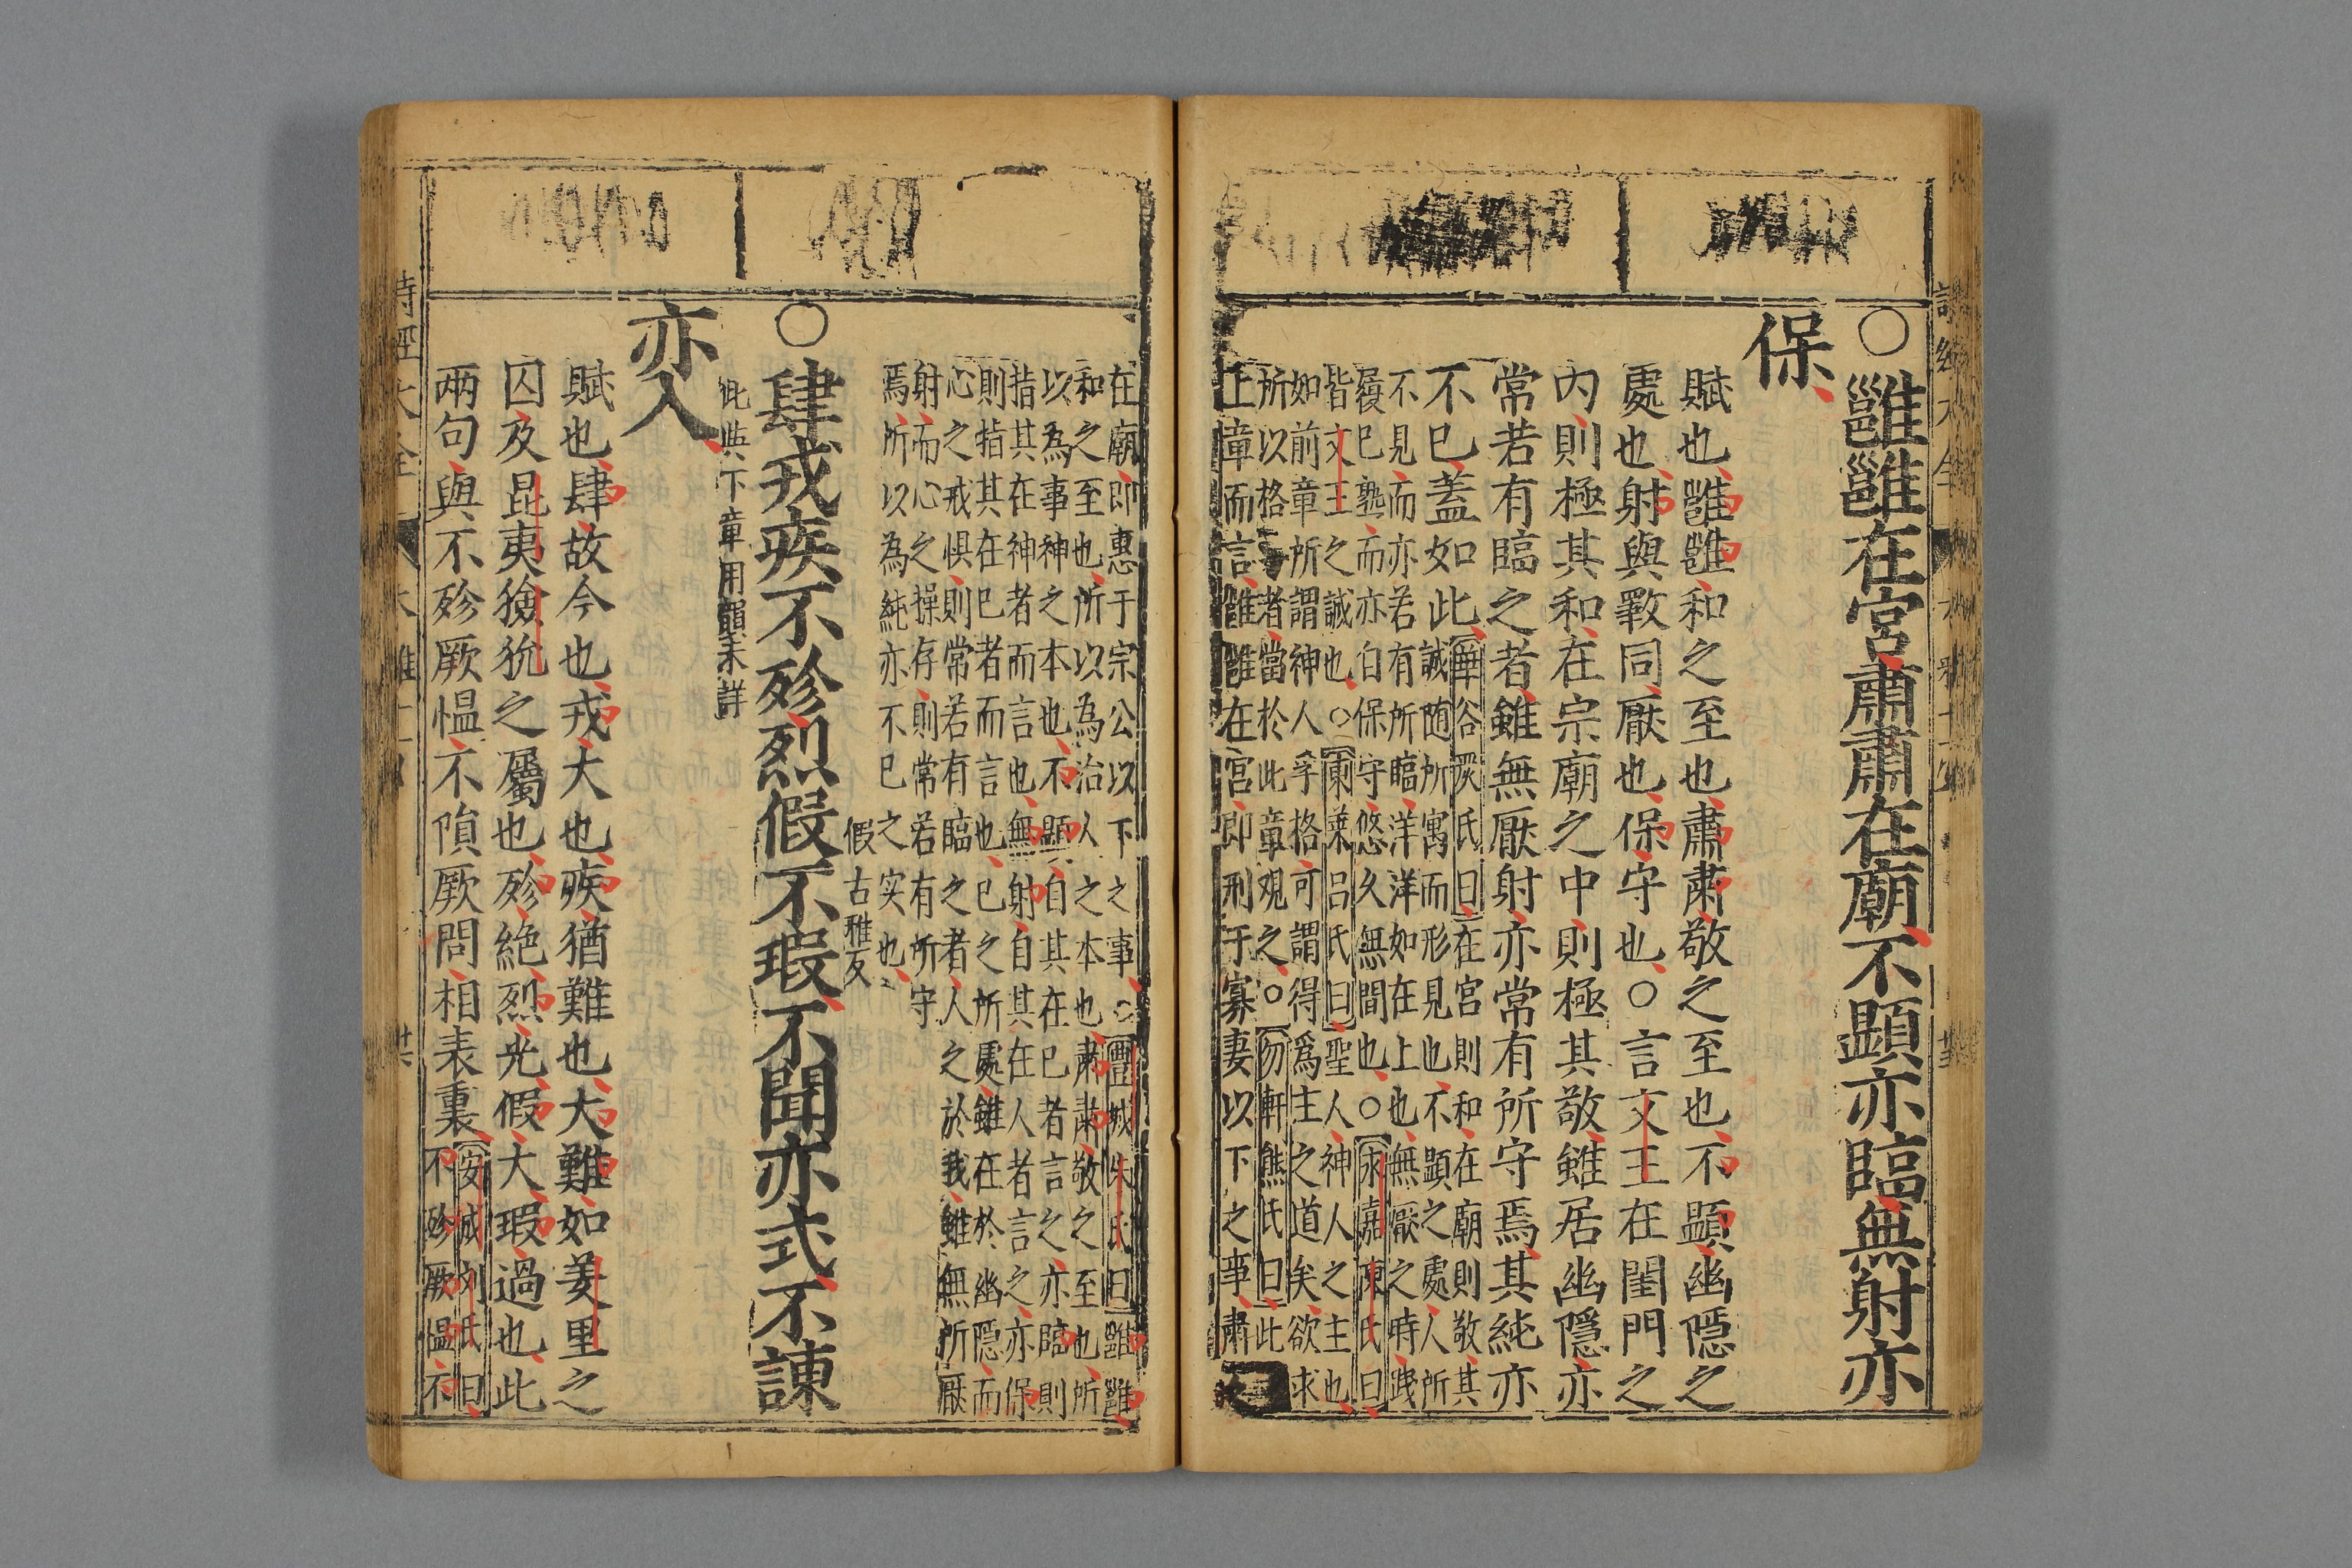 ○雝雝在宮肅肅在廟不顯亦臨無射亦
保
賦也雝雝和之至也肅肅敬之至也不顯幽隱之
處也射與斁同厭也保守也○言文王在閨門之
內則極其和在宗廟之中則極其敬雖居幽隱亦
常若有臨之者雖無厭射亦常有所守焉其純亦
不已蓋如此
華谷嚴氏曰在宮則和在廟則敬其
誠随所寓而形見也不顯之處人所
不見而亦若有所臨洋洋如在上也無厭之時踐
履已熟而亦自保守悠久無間也○永嘉陳氏曰
皆文王之誠也○東萊呂氏曰聖人神人之主也
如前章所謂神人孚格可謂得為主之道矣欲求
所以格者當於此章观之○勿軒熊氏曰此
上章而言雝雝在宮即刑于寡妻以下之事肅
在廟即惠于宗公以下之事○豐城朱氏曰雝雝
和之至也所以為治人之本也肅肅敬之至也所
以為事神之本也不顯自其在已者言之亦臨則
指其在神者而言也無射自其在人者言之亦保
則指其在已者而言也已之所處雖在於幽隠而
心之戒惧則常若有臨之者人之於我雖無所厭
射而心之操存則常若有所守
焉所以為純亦不已之实也
假古雅反
○肆戎疾不殄烈假不瑕不聞亦式不諫
此與下章用韻未詳
亦入
賦也肆故今也戎大也疾猶難也大難如羑里之
囚及昆夷獫狁之屬也殄絕烈光假大瑕過也此
兩句與不殄厥慍不隕厥問相表裏
安成刘氏曰
不殄厥慍不